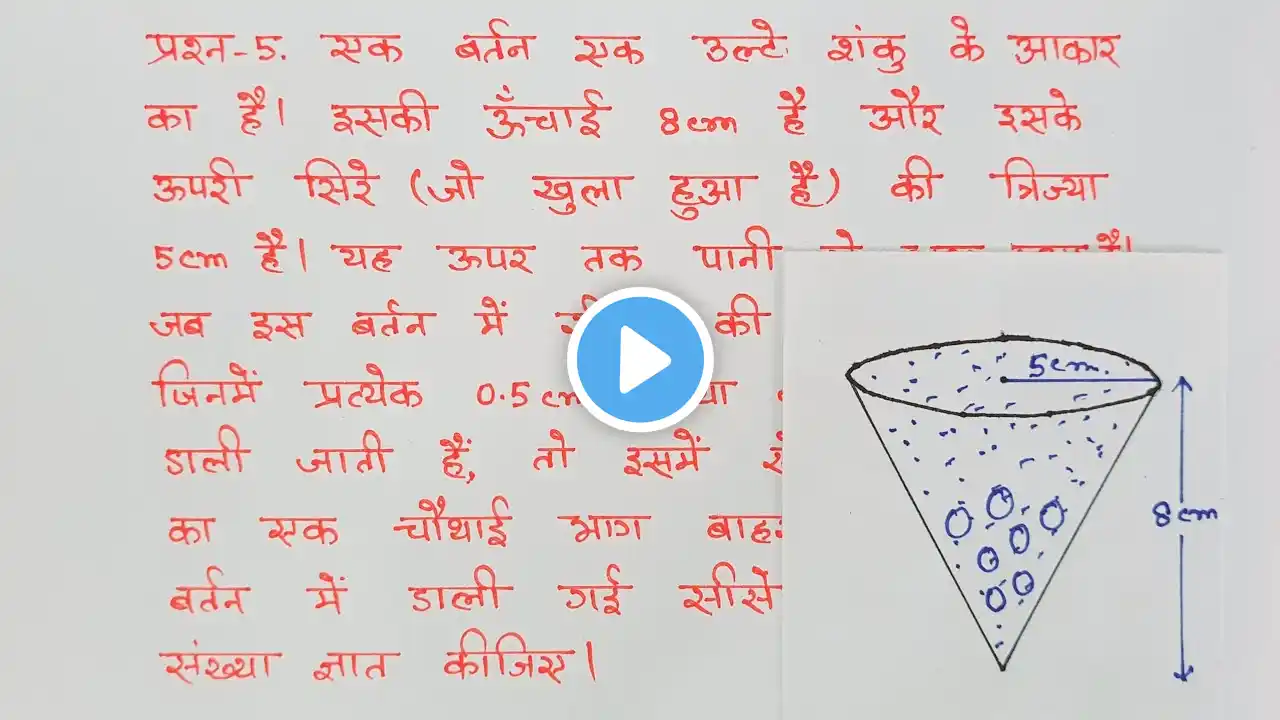 प्रश्न-5. एक बर्तन एक उल्टे शंकु के आकार
का है। इसकी ऊँचाई 8cm है और इसके
ऊपरी सिरे (जो खुला हुआ है) की त्रिज्या
5cm है। यह ऊपर तक पानी
जब इस बर्तन में की
जिनमें प्रत्येक 0.5 cm
डाली जाती हैं, तो इसमें
का एक चौथाई भाग
बर्तन में डाली गई सीसे
संख्या ज्ञात कीजिए।
5cm.
8cm